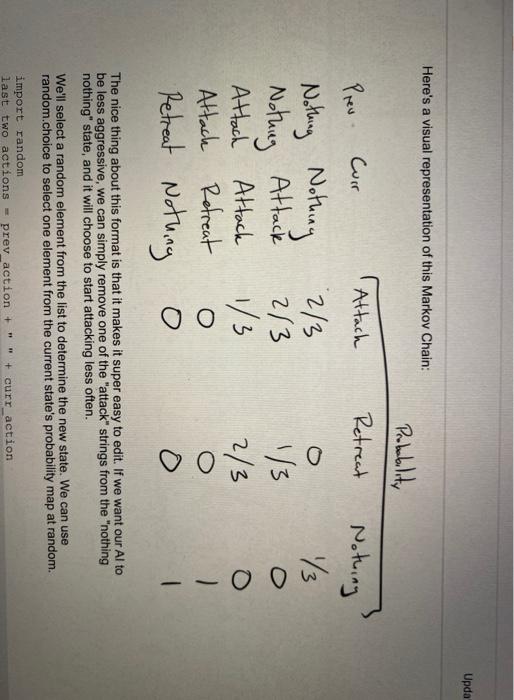 Upda
Here's a visual representation of this Markov Chain:
Probability
Prev Curr Attack Retreat Nothing
Nothing Nothing 2/3 0 1/3
Nothing Attack 2/3 1/3 0
Attack Attack 1/3 2/3 0
Attack Retreat 0 0 1
Retreat Nothing 0 0 1
The nice thing about this format is that it makes it super easy to edit. If we want our AI to
be less aggressive, we can simply remove one of the "attack" strings from the "nothing
nothing" state, and it will choose to start attacking less often.
We'll select a random element from the list to determine the new state. We can use
random.choice to select one element from the current state's probability map at random.
import random
last two actions = prev_action + " " + curr_action